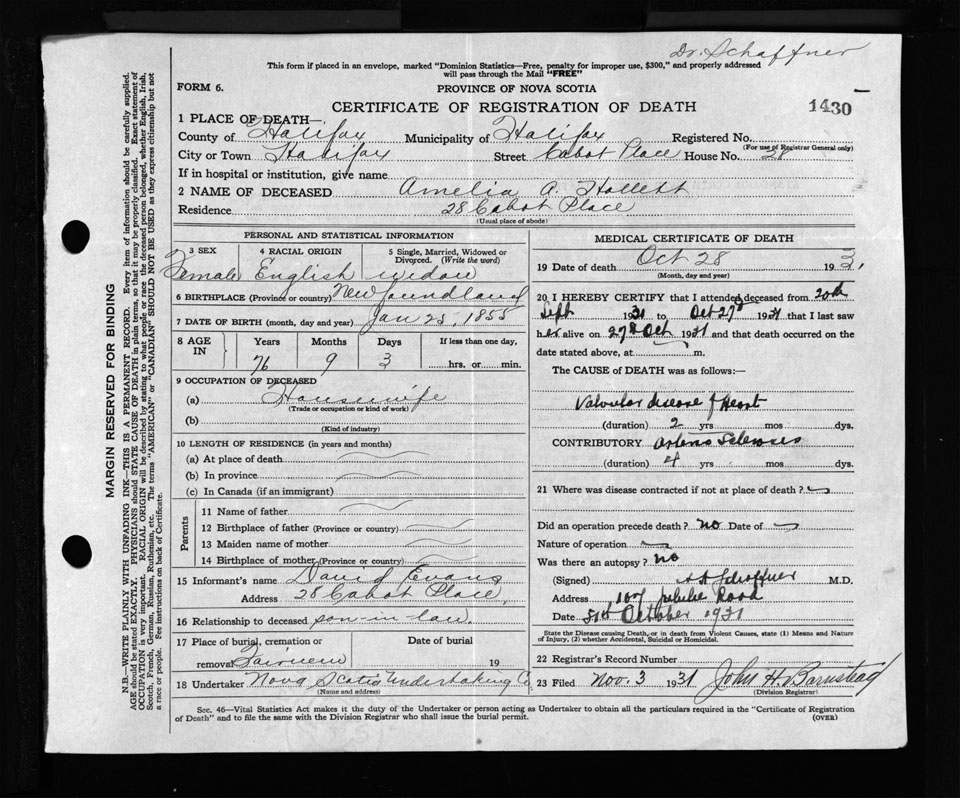 Dr. Schaffner
This form if placed in an envelope, marked "Dominion Statistics—Free, penalty for improper use, $300," and properly addressed
will pass through the Mail "FREE"
FORM 6.
PROVINCE OF NOVA SCOTIA
CERTIFICATE OF REGISTRATION OF DEATH
1430
1 PLACE OF DEATH—
County of Halifax Municipality of Halifax Registered No.
(For use of Registrar General only)
City or Town Halifax Street Cabot Place House No. 28
If in hospital or institution, give name
2 NAME OF DECEASED Amelia A. Hollett
Residence 28 Cabot Place
(Usual place of abode)
PERSONAL AND STATISTICAL INFORMATION
3 SEX 4 RACIAL ORIGIN 5 Single, Married, Widowed or
Divorced. (Write the word)
Female English widow
6 BIRTHPLACE (Province or country) Newfoundland
7 DATE OF BIRTH (month, day and year) Jan 25, 1855
8 AGE
IN
Years Months Days If less than one day,
76 9 3 hrs. or min.
9 OCCUPATION OF DECEASED
(a) Housewife
(Trade or occupation or kind of work)
(b)
(Kind of industry)
10 LENGTH OF RESIDENCE (in years and months)
(a) At place of death
(b) In province
(c) In Canada (if an immigrant)
Parents
11 Name of father
12 Birthplace of father (Province or country)
13 Maiden name of mother
14 Birthplace of mother (Province or country)
15 Informant's name David Evans
Address 28 Cabot Place,
16 Relationship to deceased son-in-law.
17 Place of burial, cremation or Date of burial
removal Fairview 19
18 Undertaker Nova Scotia Undertaking Co
(Name and address)
MEDICAL CERTIFICATE OF DEATH
19 Date of death Oct 28 1931
(Month, day and year)
20 I HEREBY CERTIFY that I attended deceased from 20th
Sept 1931 to Oct 27th 1931 that I last saw
her alive on 27th Oct 1931 and that death occurred on the
date stated above, at m.
The CAUSE of DEATH was as follows:—
Valvular disease of Heart
(duration) 2 yrs mos dys.
CONTRIBUTORY Arterio Sclerosis
(duration) 4 yrs mos dys.
21 Where was disease contracted if not at place of death?
Did an operation precede death? no Date of
Nature of operation
Was there an autopsy? no
(Signed) Schaffner M.D.
Address 107 Road
Date 31st October 1931
State the Disease causing Death, or in death from Violent Causes, state (1) Means and Nature
of Injury, (2) whether Accidental, Suicidal or Homicidal.
22 Registrar's Record Number
23 Filed Nov. 3 1931 John H. Barnstead
(Division Registrar)
Sec. 46—Vital Statistics Act makes it the duty of the Undertaker or person acting as Undertaker to obtain all the particulars required in the "Certificate of Registration
of Death" and to file the same with the Division Registrar who shall issue the burial permit.
(OVER)
MARGIN RESERVED FOR BINDING
N.B.—WRITE PLAINLY WITH UNFADING INK—THIS IS A PERMANENT RECORD. Every item of information should be carefully supplied.
AGE should be stated EXACTLY. PHYSICIANS should STATE CAUSE OF DEATH in plain terms, so that it may be properly classified. Exact statement of
OCCUPATION is very important. RACIAL ORIGIN will be described by stating to what people or race the deceased person belonged, whether English, Irish,
Scotch, French, German, Russian, Ruthenian, etc. The terms "AMERICAN" or "CANADIAN" SHOULD NOT BE USED as they express citizenship but not
a race or people. See instructions on back of Certificate.